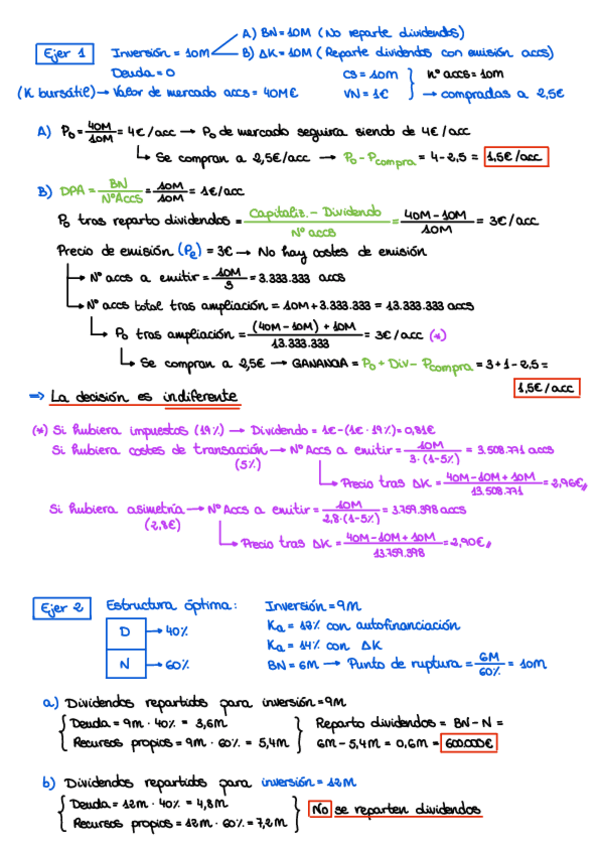 A) BN=10M (No reparte dividendos)
Ejer 1 Inversión = 10M B) ΔK=10M (Reparte dividendos con emisión accs)
Deuda = 0 CS = 10M nº accs=10M
(K bursátil) → Valor de mercado accs = 40M€ VN = 1€ → compradas a 2,5€
A) P₀ = 40M/10M = 4€/acc → P₀ de mercado seguirá siendo de 4€/acc
↳ Se compran a 2,5€/acc → P₀ - Pcompra = 4-2,5 = 1,5€/acc
B) DPA = BN/NºAccs = 10M/10M = 1€/acc
P₀ tras reparto dividendos = Capitaliz. - Dividendo/Nº accs = 40M-10M/10M = 3€/acc
Precio de emisión (Pe) = 3€ → No hay costes de emisión
↳ Nº accs a emitir = 10M/3 = 3.333.333 accs
↳ Nº accs total tras ampliación = 10M+3.333.333 = 13.333.333 accs
↳ P₀ tras ampliación = (40M-10M)+10M/13.333.333 = 3€/acc (*)
↳ Se compran a 2,5€ → GANANCIA = P₀ + Div - Pcompra = 3+1-2,5 =
1,5€/acc
⇒ La decisión es indiferente
(*) Si hubiera impuestos (19%) → Dividendo = 1€-(1€·19%)=0,81€
Si hubiera costes de transacción → Nº Accs a emitir = 10M/3·(1-5%) = 3.508.771 accs
(5%)
↳ Precio tras ΔK = 40M-10M+10M/13.508.771 = 2,96€
Si hubiera asimetría → Nº Accs a emitir = 10M/2,8·(1-5%) = 3.759.398 accs
(2,8€)
↳ Precio tras ΔK = 40M-10M+10M/13.759.398 = 2,90€
Ejer 2 Estructura óptima: Inversión = 9M
D → 40% Ka = 13% con autofinanciación
Ka = 14% con ΔK
N → 60% BN = 6M → Punto de ruptura = 6M/60% = 10M
a) Dividendos repartidos para inversión = 9M
Deuda = 9M · 40% = 3,6M Reparto dividendos = BN - N =
Recursos propios = 9M · 60% = 5,4M 6M - 5,4M = 0,6M = 600.000€
b) Dividendos repartidos para inversión = 12M
Deuda = 12M · 40% = 4,8M No se reparten dividendos
Recursos propios = 12M · 60% = 7,2M